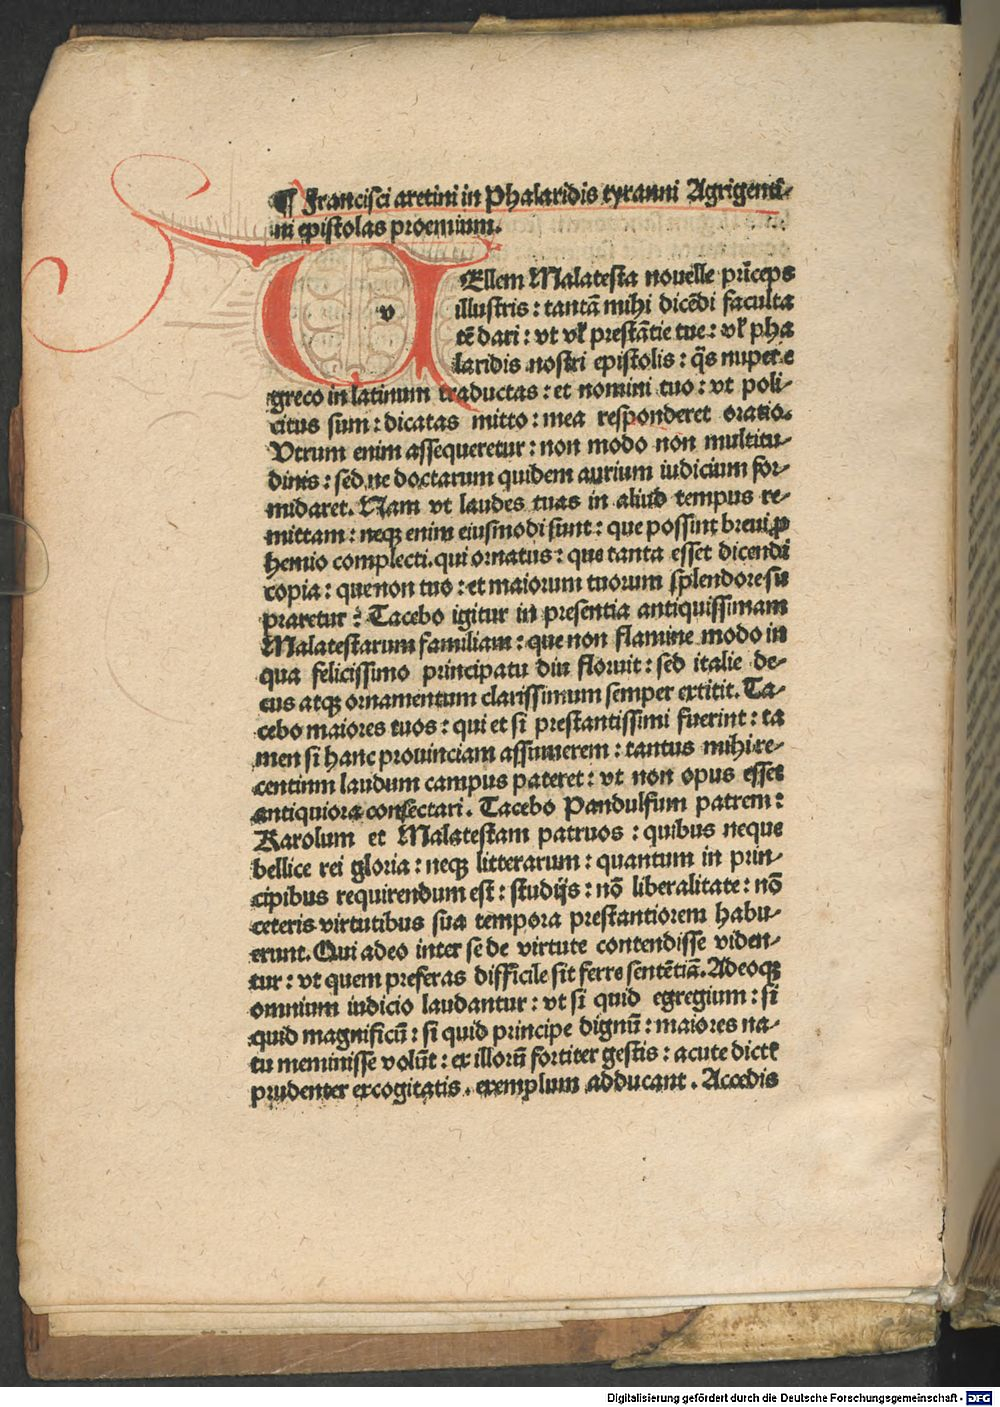 ¶ Francisci aretini in Phalaridis tyranni Agrigenti-
ni epistolas proemium.
v
Ellem Malatesta nouelle prīceps
illustris : tantā mihi dicēdi faculta
tē dari : vt vł prestātie tue : vł pha
laridis nostri epistolis : q̄s nuper e
greco in latinum traductas : et nomini tuo : vt poli-
citus sum : dicatas mitto : mea responderet oratio.
Vtrum enim assequeretur : non modo non multitu-
dinis : sed ne doctarum quidem aurium iudicium for-
midaret. Nam vt laudes tuas in aliud tempus re-
mittam : neqꝫ enim eiusmodi sunt : que possint breui ꝓ
hemio complecti. qui ornatus : que tanta esset dicendi
copia : que non tuo : et maiorum tuorum splendore su
praretur : Tacebo igitur in presentia antiquissimam
Malatestarum familiam : que non flamine modo in
qua felicissimo principatu diu floruit : sed italie de-
cus atqꝫ ornamentum clarissimum semper extitit. Ta-
cebo maiores tuos : qui et si prestantissimi fuerint : ta
men si hanc prouinciam assumerem : tantus mihi re-
centium laudum campus pateret : vt non opus esset
antiquiora consectari. Tacebo Pandulfum patrem :
Karolum et Malatestam patruos : quibus neque
bellice rei gloria : neqꝫ litterarum : quantum in prin-
cipibus requirendum est : studijs : nō liberalitate : nō
ceteris virtutibus sua tempora prestantiorem habu-
erunt. Qui adeo inter se de virtute contendisse viden-
tur : vt quem preferas difficile sit ferre sentētiā. Adeoqꝫ
omnium iudicio laudantur : vt si quid egregium : si
quid magnificū : si quid principe dignū : maiores na-
tu meminisse volūt : ex illorū fortiter gestis : acute dictꝭ
prudenter excogitatis. exemplum adducant. Accedis
Digitalisierung gefördert durch die Deutsche Forschungsgemeinschaft - DFG